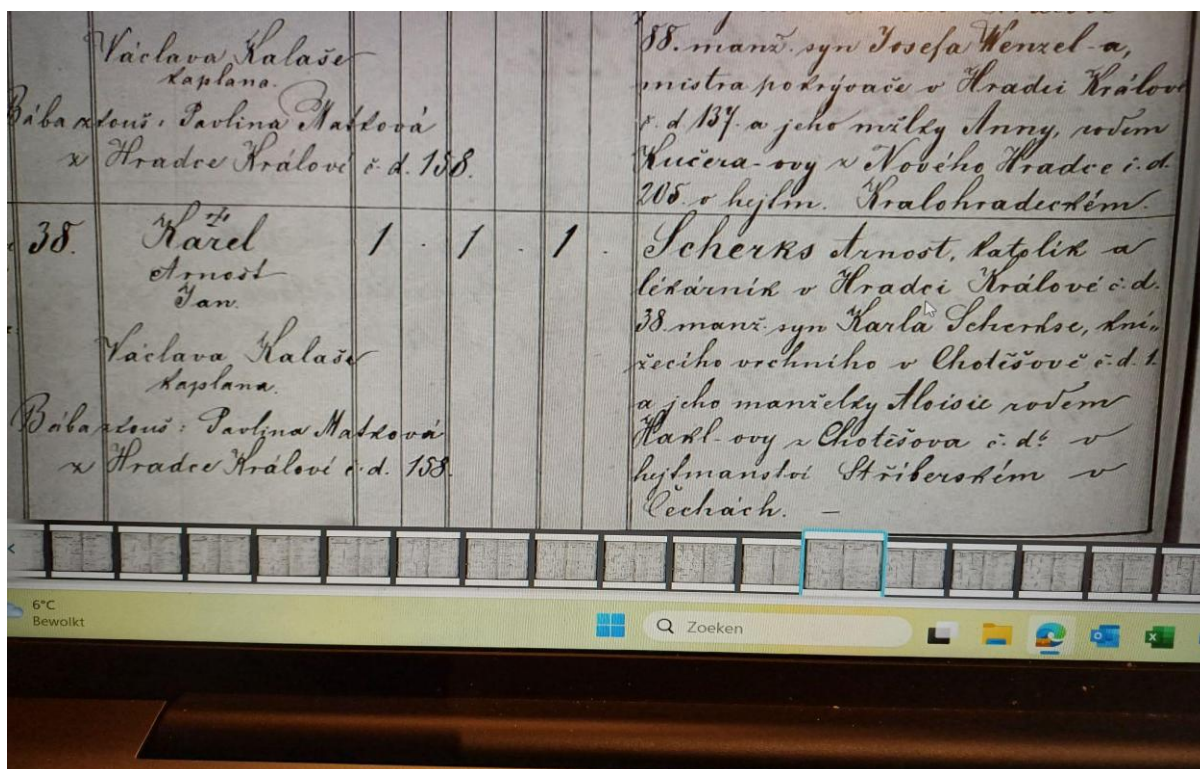 Václava Kalaše
kaplana.
Bába zkouš: Pavlina Matková
z Hradce Králové č. d. 158.
88. manž. syn Josefa Wenzel-a,
mistra pokrývače v Hradci Králové
č. d 137. a jeho mžlky Anny, rodem
Kučera-ovy z Nového Hradce č. d.
205. v hejtm. Kralohradeckém.
38.
Karel
Arnošt
Jan.
1 . 1 . 1 .
Václava Kalaše
kaplana.
Bába zkouš: Pavlina Matková
z Hradce Králové č. d. 158.
Scherks Arnošt, katolík a
lékárník v Hradci Králové č. d.
38. manž. syn Karla Scherkse, kní„
žecího vrchního v Chotěšově č. d. 1.
a jeho manželky Aloisie rodem
Hakl-ovy z Chotěšova č. d. v
hejtmanství Stříberském v
Čechách. —
6°C
Bewolkt
Zoeken